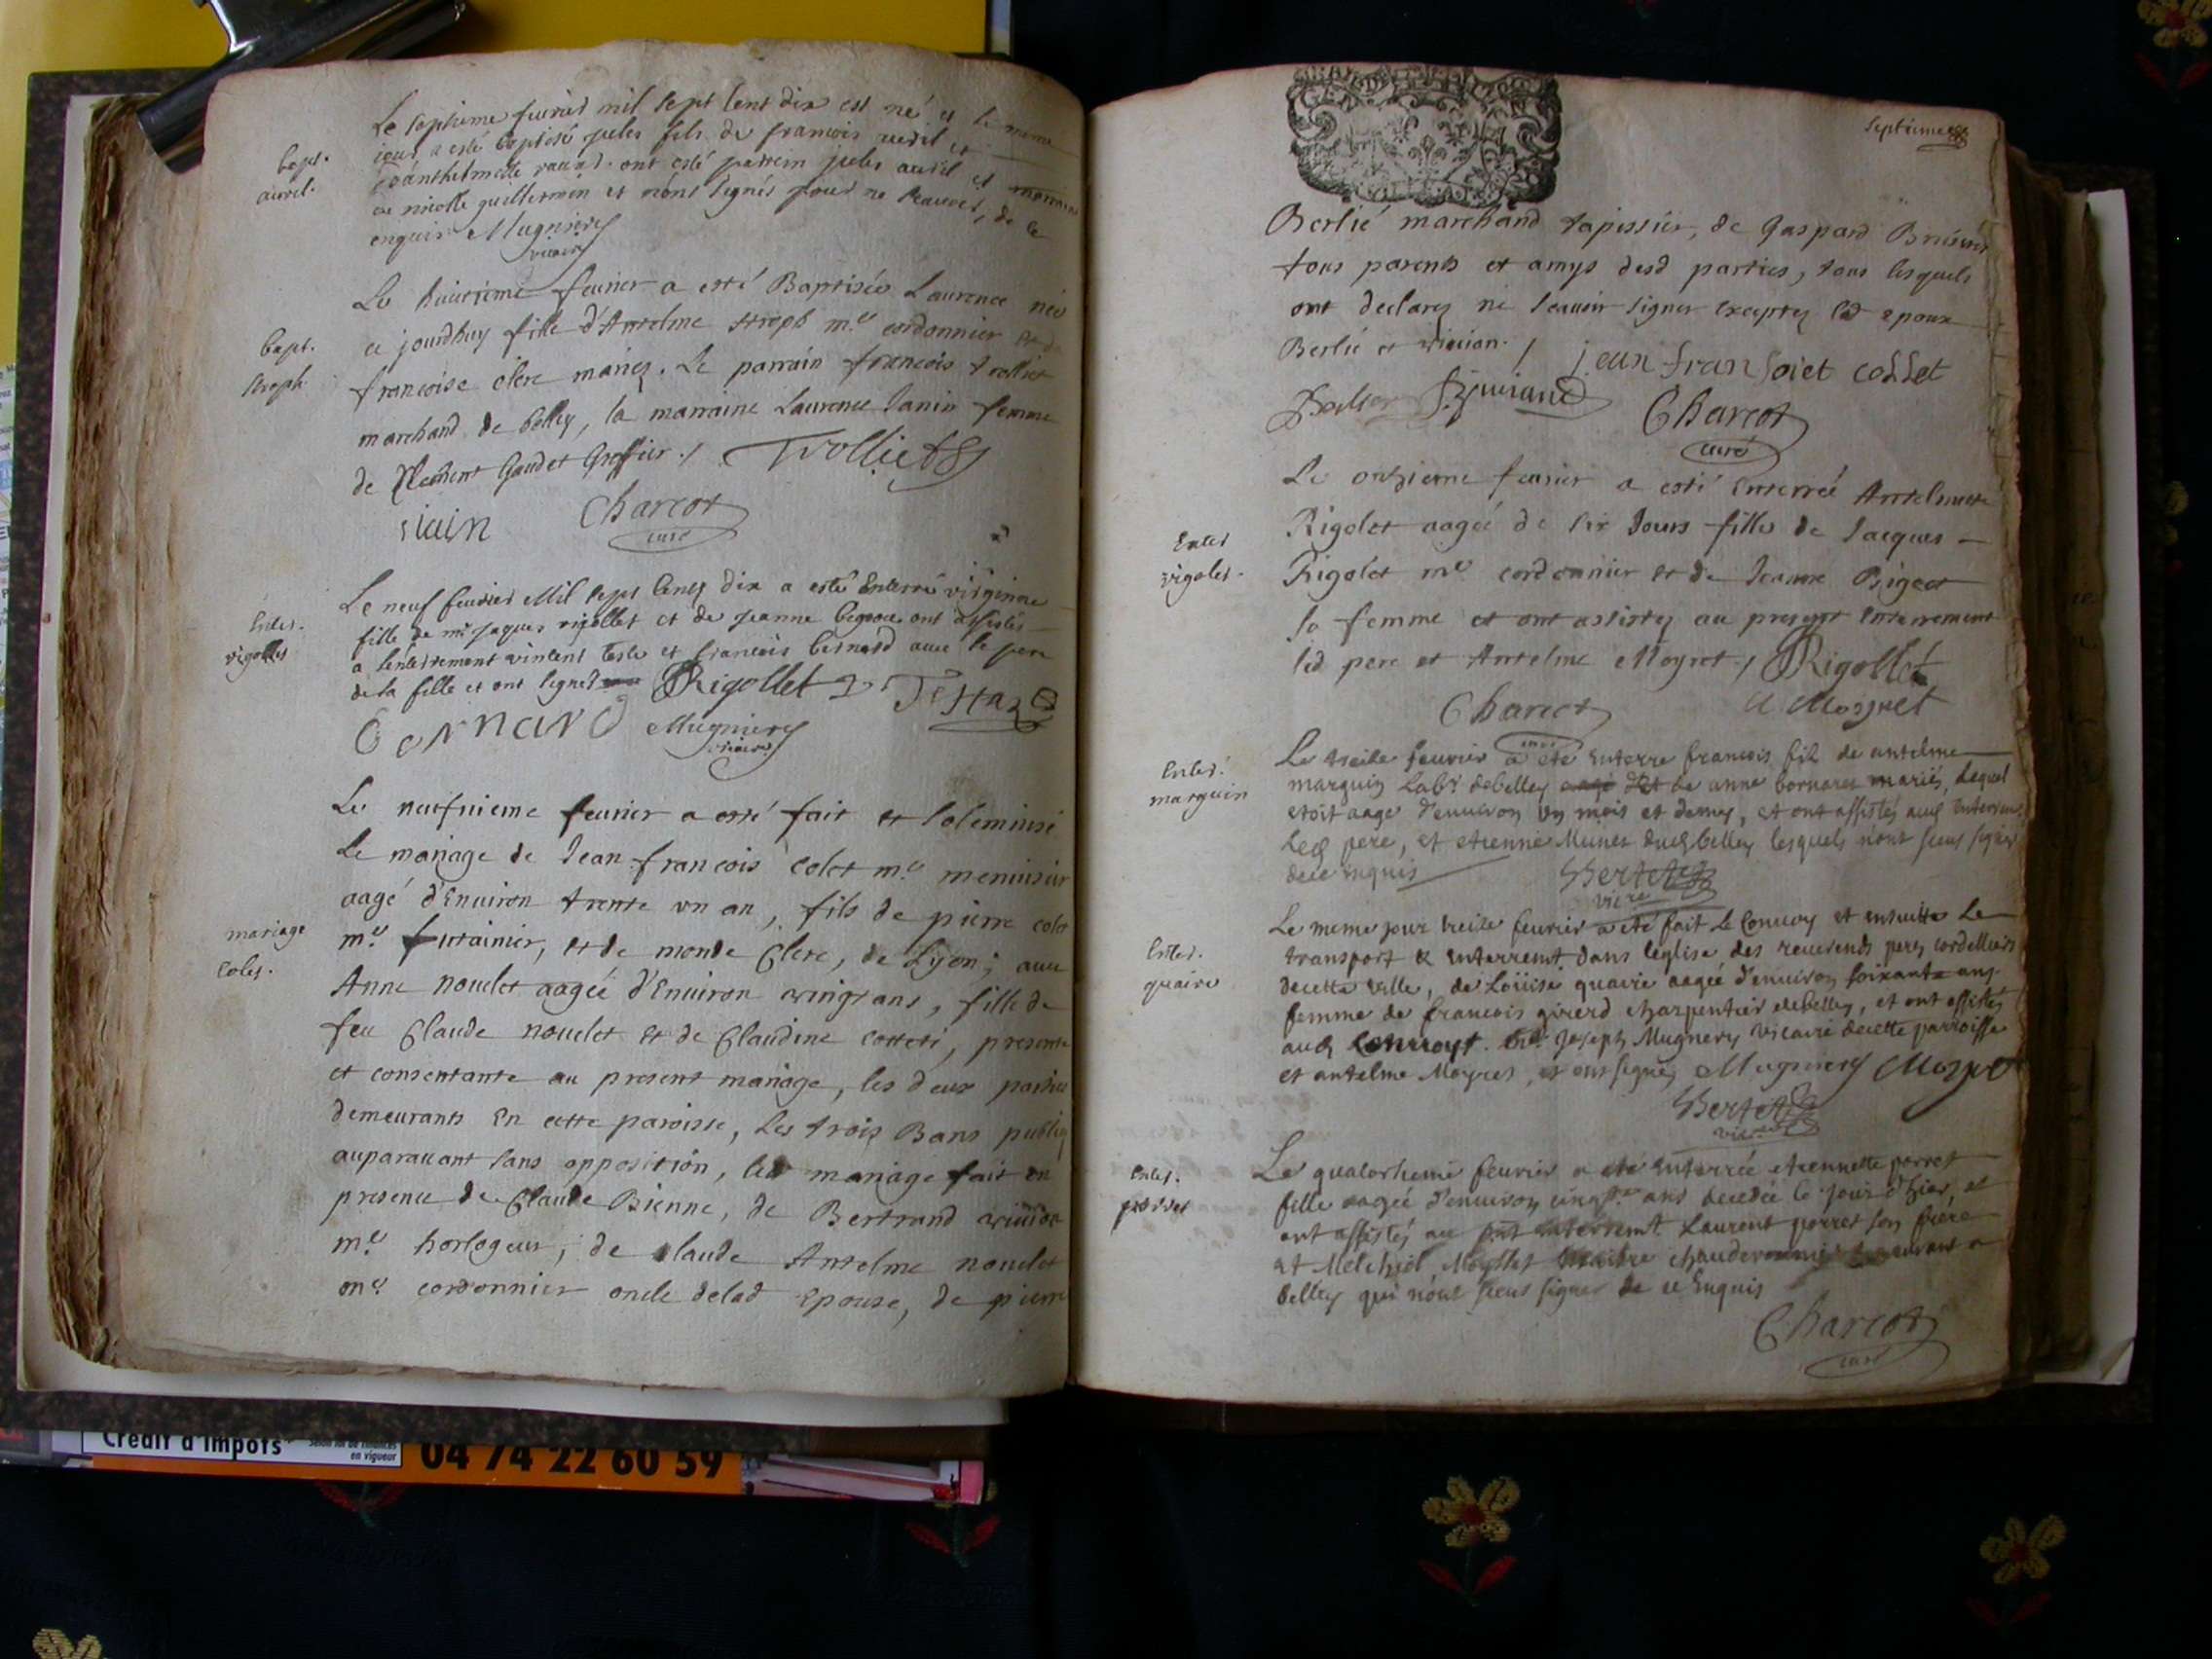 Le septieme feurier mil sept cent dix est né et le meme
jour a esté baptisé jules fils de francois auril et
danthelmette ont esté parrein jules auril et marraine
nicolle guillermin et nont signés pour ne scauoir, de ce
enquis Mugniery
vicaire
bapt.
auril.
Le huictieme feurier a esté Baptisée Laurence née
ce jourdhuy fille d'Antelme stroph m.e cordonnier et de
francoise clerc mariez. Le parrain francois trolliet
marchand de belley, la marraine Laurence Janin femme
de Clement Gaudet Greffier ./ Trolliet
Charcot
curé
bapt.
stroph
Le neuf feurier Mil sept cents dix a esté Enterré virginie
fille de mr Jaques rigollet et de Jeanne ont assistés
a lenterrement vincent teste et francois bernard auec le pere
de la fille et ont signes Rigollet Testaz
bernard Mugniery
vicaire
Enter.
rigollet
Le neufuieme feurier a esté fait et solemnisé
Le mariage de Jean francois Colet m.e menuisier
aagé d'Enuiron trente vn an, fils de pierre colet
m.e futainier, et de monde Clerc, de Lyon; auec
Anne nouclet aagée d'Enuiron vingt ans, fille de
feu Claude nouclet et de Claudine cotteti, presente
et consentante au present mariage, les deux parties
demeurants En cette paroisse, Les trois Bans publiez
auparauant sans opposition, led mariage fait en
presence de Claude Bienne, de Bertrand viuian
m.e horlogeur, de claude Antelme nouclet
m.e cordonnier oncle delad Epouse, de pierre
mariage
Colet.
GEN
septieme
Berlié marchand tapissier, de Gaspard
tous parents et amys desd parties, tous lesquels
ont declarez ne scauoir signer exceptez led epoux
Berlié et viuian ./ jean fransoiet collet
Charcot
curé
Le onzieme feurier a esté Enterrée Antelmette
Rigolet aagée de six Jours fille de Jacques
Rigolet m.e cordonnier et de Jeanne Bigeot
sa femme et ont assistez au present enterrement
led pere et Antelme Moyret ./ Rigollet
Charcot A Moyret
curé
Enter
rigolet.
Le treize feurier a eté enterre francois fils de antelme
marguin Labr debelley de anne bornarel mariés, Lequel
etoit aagé d'enuiron un mois et demy, et ont assistés aud enterrem.
Led pere, et etienne Munet dud belley lesquels n'ont sceus signer
dece enquis Bertet
vicre
Enter.
marguin
Le meme jour treize feurier a eté fait Le Conuoy et ensuitte Le
transport & enterremt dans leglise des reuerends peres cordelliers
decette ville, de Loüise quaire aagée d'enuiron soixante ans
femme de francois girerd charpentier debelley, et ont assistez
aud Conuoyt. Joseph Mugnery Vicaire decette parroisse
et antelme Moyret, et ont signez Mugniery Moyret
Bertet
vicre
Enter.
quaire
Le quatorzieme feurier a eté enterrée etiennette porret
fille aagée d'enuiron ans decedée le jour d'hier, et
ont assistés au pnt enterremt Laurent porret son frere
et Melchiol Moyllet maitre chauderonnier a
belley qui n'ont sceus signer de ce Enquis
Charcot
curé
Enter.
porret
Crédit d'impôts
en vigueur
04 74 22 60 59